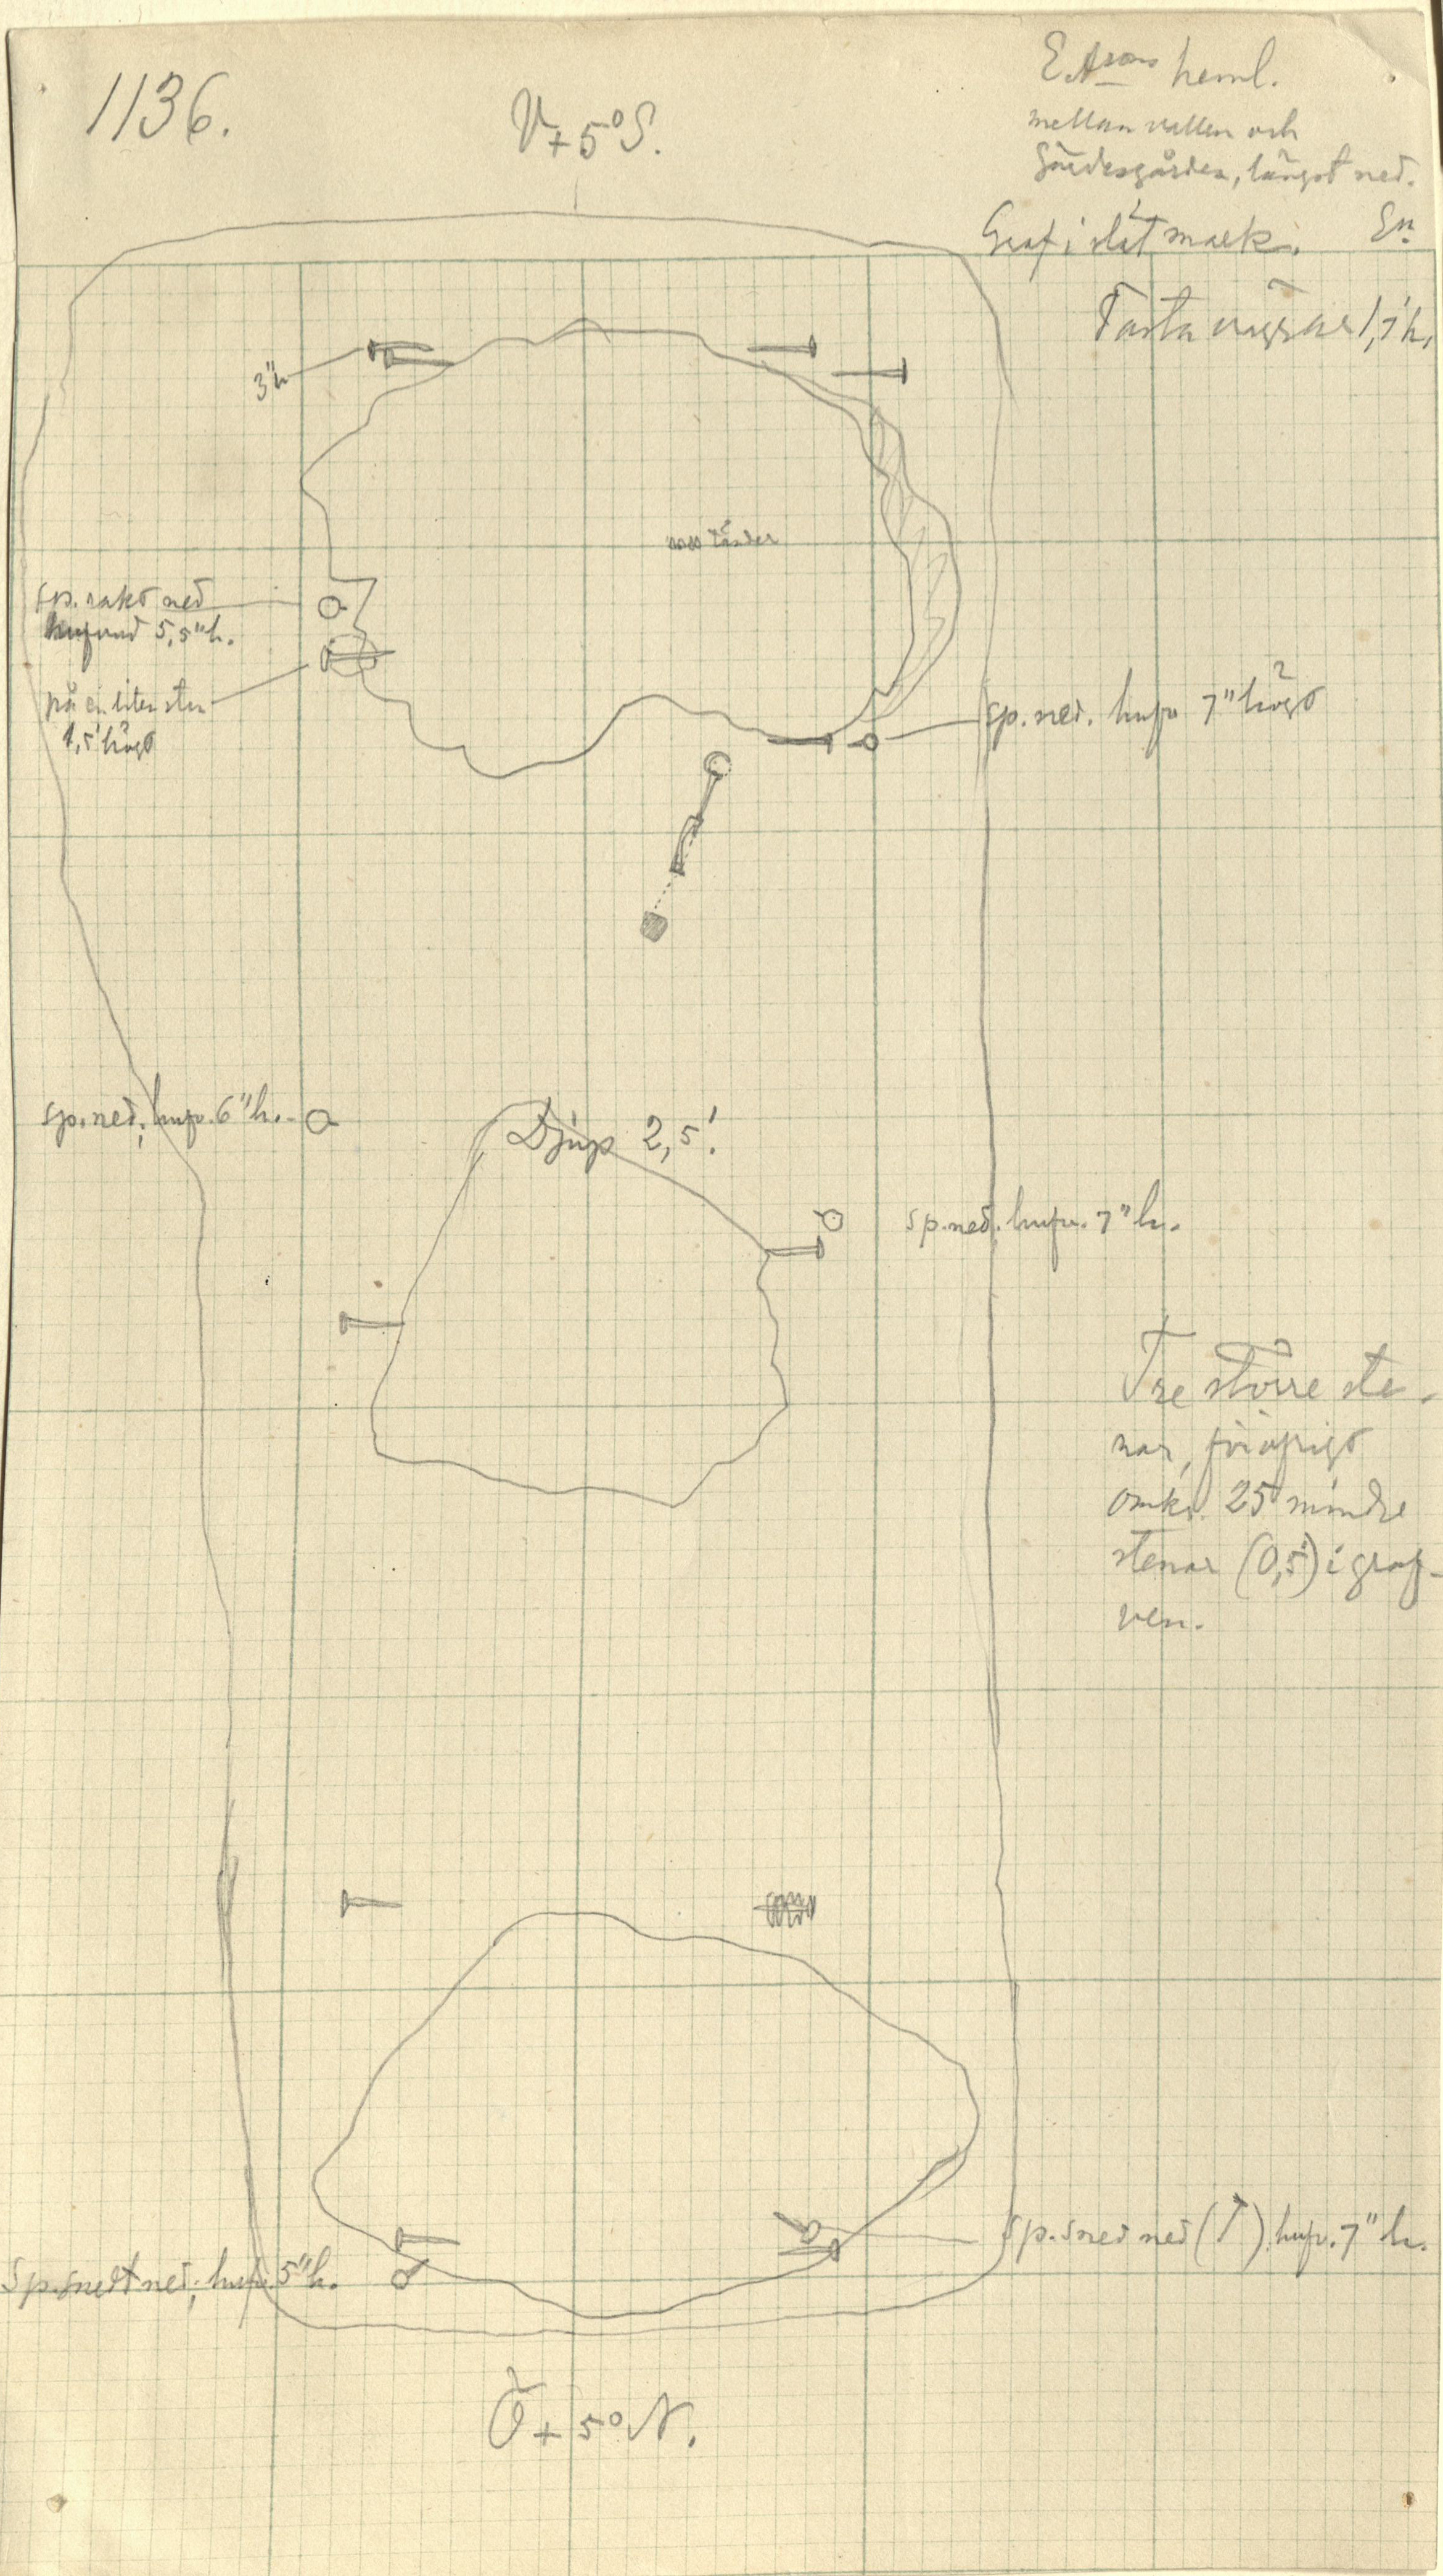 1136.
V+5°S.
E. A:sons heml.
mellan vallen och
Gärdesgården, längst ned.
Graf i slät mark. En.
Fasta väggar 1,7' h.
3" h
tänder
sp. rakt ned
hufvud 5,5" h.
på en liten sten
1,5' högt
sp. ned. hufv 7" högt
sp. ned; hufv. 6" h.
Djup 2,5'.
sp. ned. hufv. 7" h.
Tre större ste-
nar, för öfrigt
omkr. 25 mindre
stenar (0,5') i graf-
ven.
sp. sned ned (↑) hufv. 7" h.
Sp. snedt ned; hufv. 5" h.
Ö+5°N.